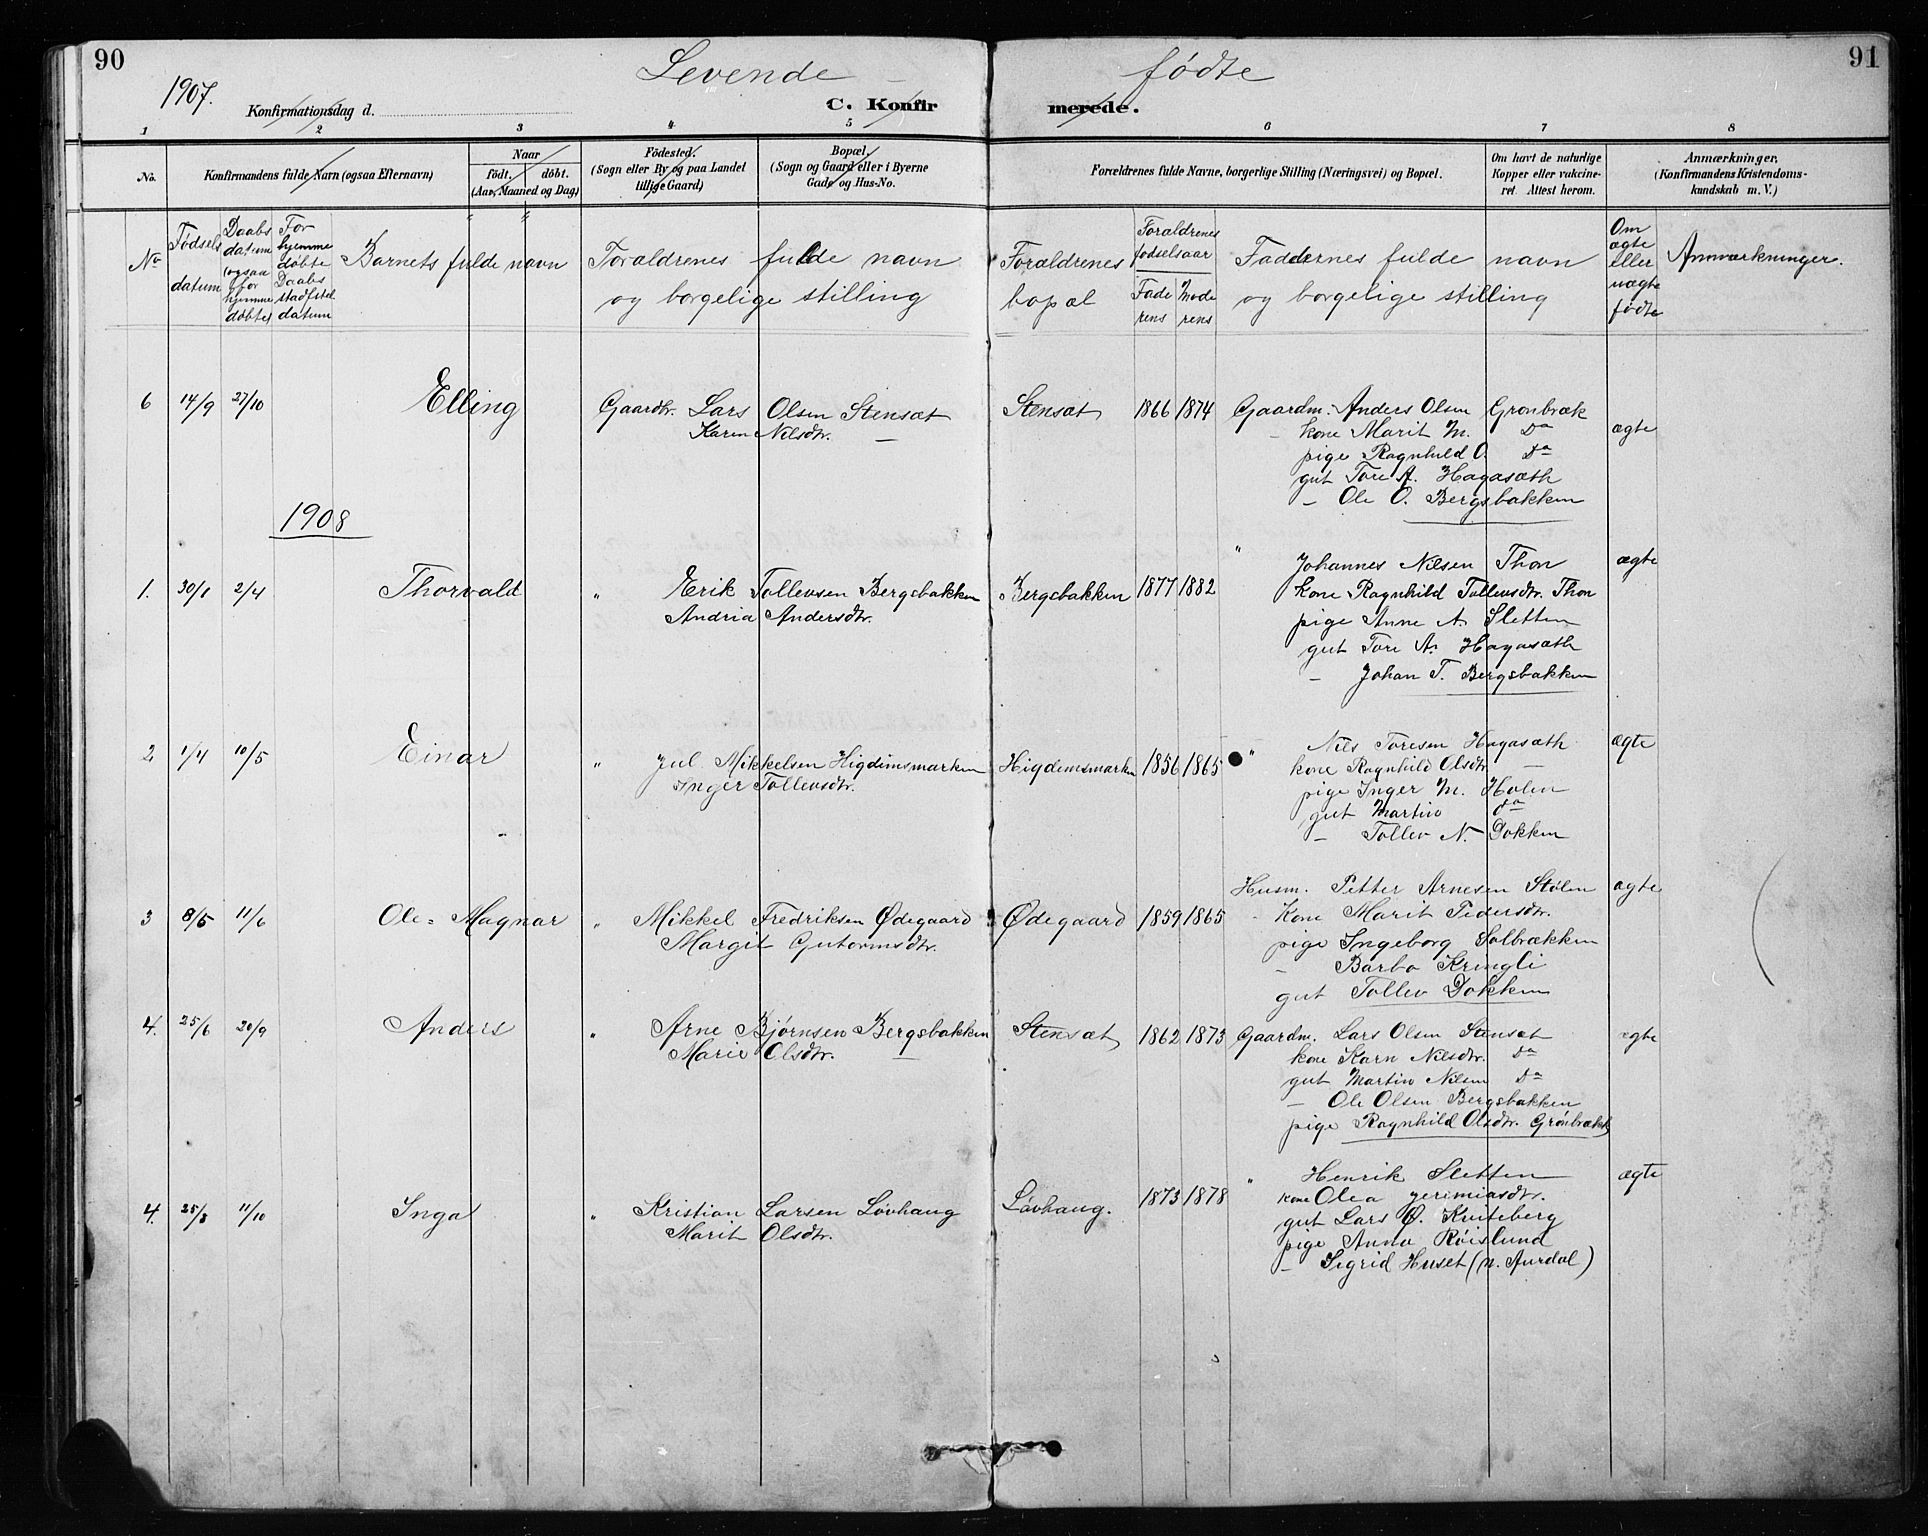 90
91
Levende – fødte
1907.
Konfirmationsdag d.
C. Konfirmerede.
1 2 3 4 5 6 7 8
No.
Konfirmandens fulde Navn (ogsaa Efternavn)
Naar
født. døbt.
(Aar, Maaned og Dag)
Fødested.
(Sogn eller By og paa Landet
tillige Gaard)
Bopæl.
(Sogn og Gaard eller i Byerne
Gade og Hus-No.
Forældrenes fulde Navne, borgerlige Stilling (Næringsvei) og Bopæl.
Om havt de naturlige
Kopper eller vakcine-
ret. Attest herom.
Anmærkninger.
(Konfirmandens Kristendoms-
kundskab m. V.)
No
Fødsels
datum
Daabs
datum
(ogsaa
for
hjemme
døbte)
For
hjemme
døbte
Daabs
stadfstel
datum
Barnets fulde navn
Foraldrenes fulde navn
og borgelige stilling
Foraldrenes
bopæl
Foraldrenes
fødselsaar
Fade
rens
Mode
rens
Faddernes fulde navn
og borgelige stilling
Om
ægte
eller
uægte
fødte
Anmærkninger.
6 14/9 27/10 Elling Gaardbr. Lars Olsen Stensæt
Karen Nilsdtr. –
Stensæt 1866 1874
Gaardm. Anders Olsen Grønbræk
– kone Marit M. Do
pige Ragnhild O. Do
gut Tore A. Hagasæth
– Ole O. Bergsbakken
ægte
1908
1. 30/1 2/4 Thorvald " Erik Tollevsen Bergsbakken
Andria Andersdtr.
Bergsbakken 1877 1882
" Johannes Nilsen Thon
Kone Ragnhild Tollevsdtr. Thon
pige Anne A. Sletten
gut Tore A. Hagasæth
– Johan T. Bergsbakken
ægte
2 1/4 10/5 Einar " Jul. Mikkelsen Higdimsmarken
Inger Tollevsdtr.
Higdemsmarken 1856 1865
" Nils Toresen Hagasæth
kone Ragnhild Olsdtr. –
pige Inger M. Holen
gut Martin do
– Tollev N. Dokken
ægte
3 8/5 11/6 Ole= Magnar " Mikkel Fredriksen Ødegaard
Margit Gutormsdtr.
Ødegaard 1859 1865
Husm. Petter Arnesen Stølen
– Kone Marit Pedersdtr.
pige Ingeborg Solbrækken
– Barbo Kringli
gut Tollev Dokken
ægte
4. 25/6 20/9 Anders " Arne Bjørnsen Bergsbakken
Marie Olsdtr. –
Stensæt 1862 1873
Gaardm. Lars Olsen Stensæt
kone Karn Nilsdtr. Do
gut Martin Nilsen Do
– Ole Olsen Bergsbakken
pige Ragnhild Olsdtr. Grønbrækk
ægte
4. 25/8 11/10 Inga " Kristian Larsen Løvhaug
Marit Olsdtr.
Løvhaug. 1873 1878
" Henrik Sletten
kone Olea Jerimiasdtr.
gut Lars Ø. Kviteberg
pige Anna Røislund
– Sigrid Huset (n. Aurdal)
ægte